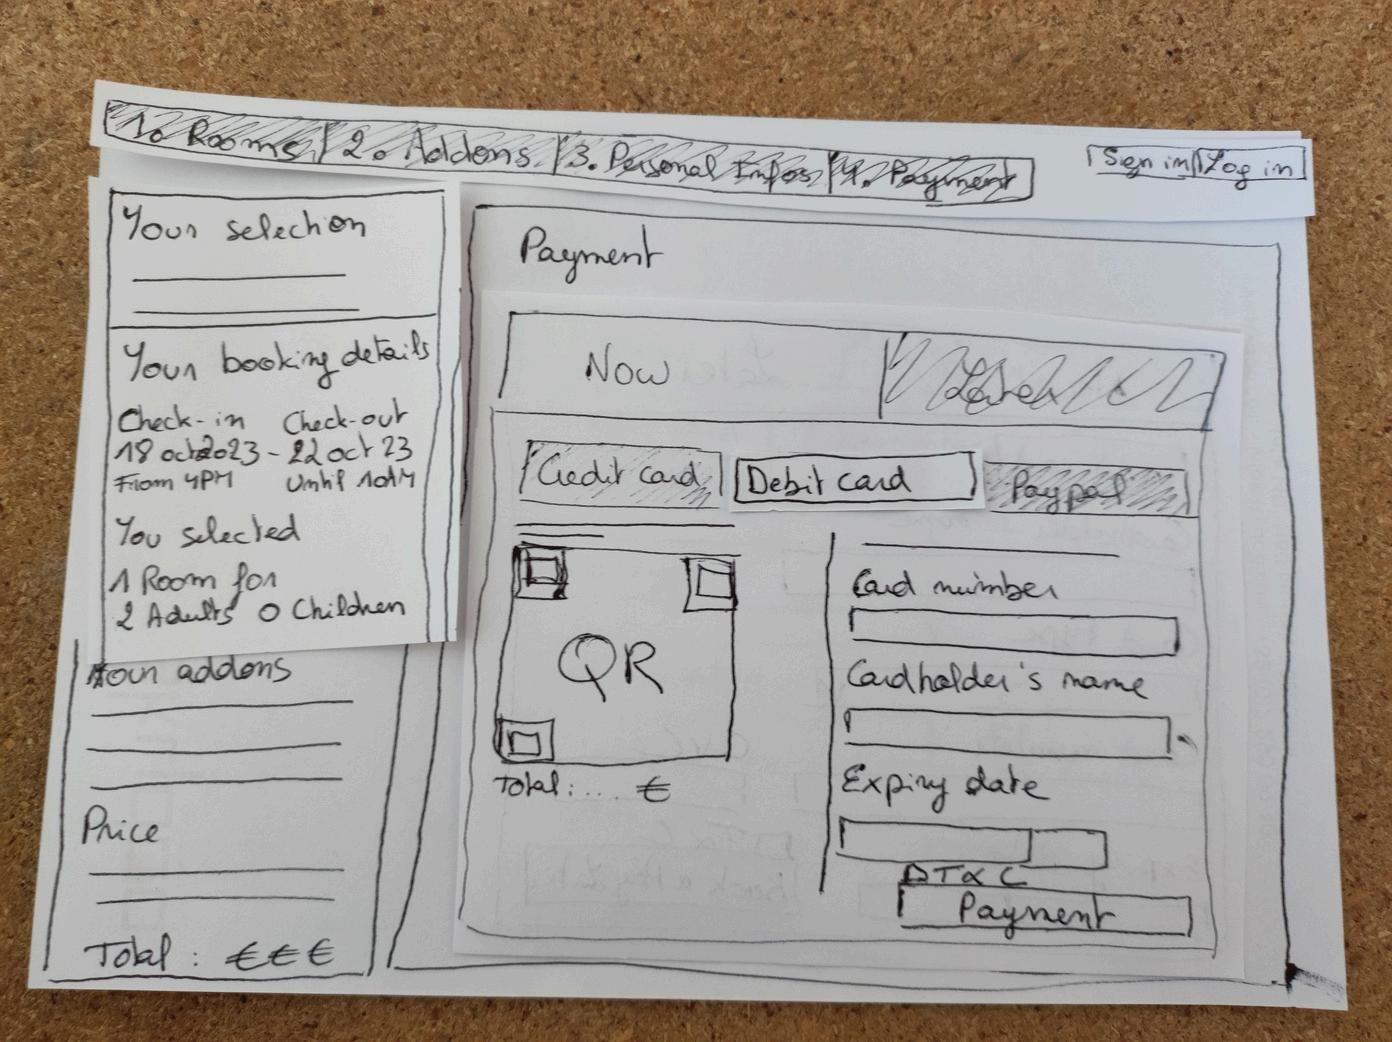 1. Rooms 2. Addons 3. Personal Infos 4. Payment
Sign in Log in
Your selection
Your booking details
Check-in Check-out
18 oct 2023 - 22 oct 23
From 4PM Until 10AM
You selected
1 Room for
2 Adults 0 Children
Your addons
Price
Total : €€€
Payment
Now Later
Credit card Debit card Paypal
QR
Total : .... €
Card number
Cardholder's name
Expiry date
T&C
Payment